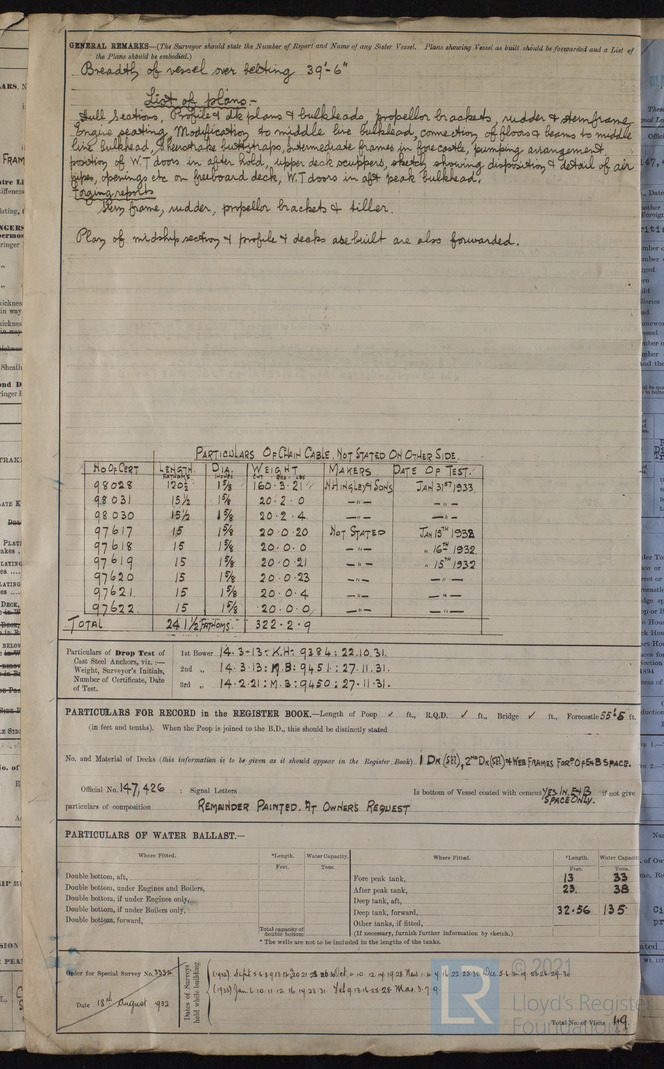 GENERAL REMARKS—(The Surveyor should state the Number of Report and Name of any Sister Vessel. Plans showing Vessel as built should be forwarded and a List of
the Plans should be embodied.)
Breadth of vessel over belting 39'-6"
List of plans:-
Hull Sections, Profile & dk plans & bulkheads, propellor brackets, rudder & sternframe
Engine seating, Modification to middle line bulkhead, connection of floors & beams to middle
line bulkhead, Sheerstrake buttstraps, Intermediate frames in forecastle, pumping arrangement
position of W.T doors in after hold, upper deck scuppers, sketch showing disposition & detail of air
pipes, openings etc on freeboard deck, W.T doors in aft peak bulkhead.
Forging reports
Stern frame, rudder, propellor brackets & tiller.
Plan of midship section & profile & decks as built are also forwarded.
PARTICULARS OF CHAIN CABLE. NOT STATED ON OTHER SIDE.
No OF CERT LENGTH FATHOMS DIA. INCHES WEIGHT CWT QRS LBS MAKERS DATE OF TEST.
98028 120½ 1⅝ 160·3·21 N HINGLEY & SONS JAN 31ST 1933
98031 15½ 1⅝ 20·2·0 —"— —"—
98030 15½ 1⅝ 20·2·4 —"— —"—
97617 15 1⅝ 20·0·20 NOT STATED JAN 15TH 1932
97618 15 1⅝ 20·0·0 —"— " 16TH 1932
97619 15 1⅝ 20·0·21 —"— " 15TH 1932
97620 15 1⅝ 20·0·23 —"— —"—
97621 15 1⅝ 20·0·4 —"— —"—
97622 15 1⅝ 20·0·0 —"— —"—
TOTAL 241½ FATHOMS. 322·2·9
Particulars of Drop Test of
Cast Steel Anchors, viz. :—
Weight, Surveyor's Initials,
Number of Certificate, Date
of Test.
1st Bower 14·3·13: K.H: 9384: 22.10.31.
2nd " 14·3·13: M.B: 9451: 27·11.31.
3rd " 14·2·21: M.B: 9450: 27·11·31.
PARTICULARS FOR RECORD in the REGISTER BOOK.—Length of Poop ✓ ft., R.Q.D. ✓ ft., Bridge ✓ ft., Forecastle 55'·5 ft.
(in feet and tenths). When the Poop is joined to the B.D., this should be distinctly stated
No. and Material of Decks (this information is to be given as it should appear in the Register Book) 1 DK (Stl), 2ND DK (Stl) & WEB FRAMES FORD OF E&B SPACE.
Official No. 147,426 ; Signal Letters Is bottom of Vessel coated with cement YES IN E&B SPACE ONLY. if not give
particulars of composition REMAINDER PAINTED. AT OWNER'S REQUEST
PARTICULARS OF WATER BALLAST.—
Where Fitted. *Length. Water Capacity. Where Fitted. *Length. Water Capacity
Feet. Tons. Feet. Tons.
Double bottom, aft, Fore peak tank, 13 33
Double bottom, under Engines and Boilers, After peak tank, 23. 38
Double bottom, if under Engines only, Deep tank, aft,
Double bottom, if under Boilers only, Deep tank, forward, 32·56 135
Double bottom, forward, Other tanks, if fitted,
Total capacity of double bottom (If necessary, furnish further information by sketch.)
* The wells are not to be included in the lengths of the tanks.
Order for Special Survey No. 3334
Date 18th August 1932
Dates of Surveys held while building
(1932) Sept 5
(1933) Jan 6 10 11 12 16 19 23 31 Feb 9 13 16 23 28 Mar 3 7 9
Total No. of Visits 49
© 2021
Lloyd's Register
Foundation
LR